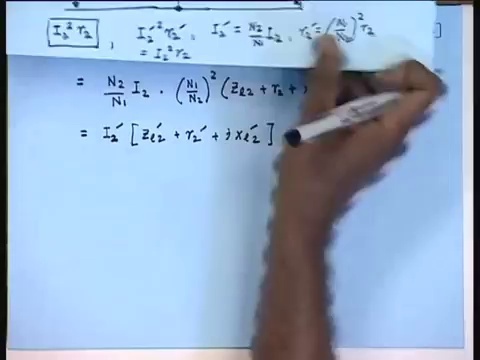 I₂²r₂ , I₂′²r₂′ , I₂′ = N₂/N₁ I₂ , r₂′ = (N₁/N₂)² r₂ ]
= I₂²r₂
= N₂/N₁ I₂ . (N₁/N₂)² (Zℓ₂ + r₂ +
= I₂′ [Zℓ₂′ + r₂′ + j xℓ₂′]